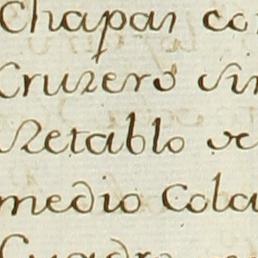 Chapas co
Cruzero sin
Retablo de
medio Cola
Cuadro